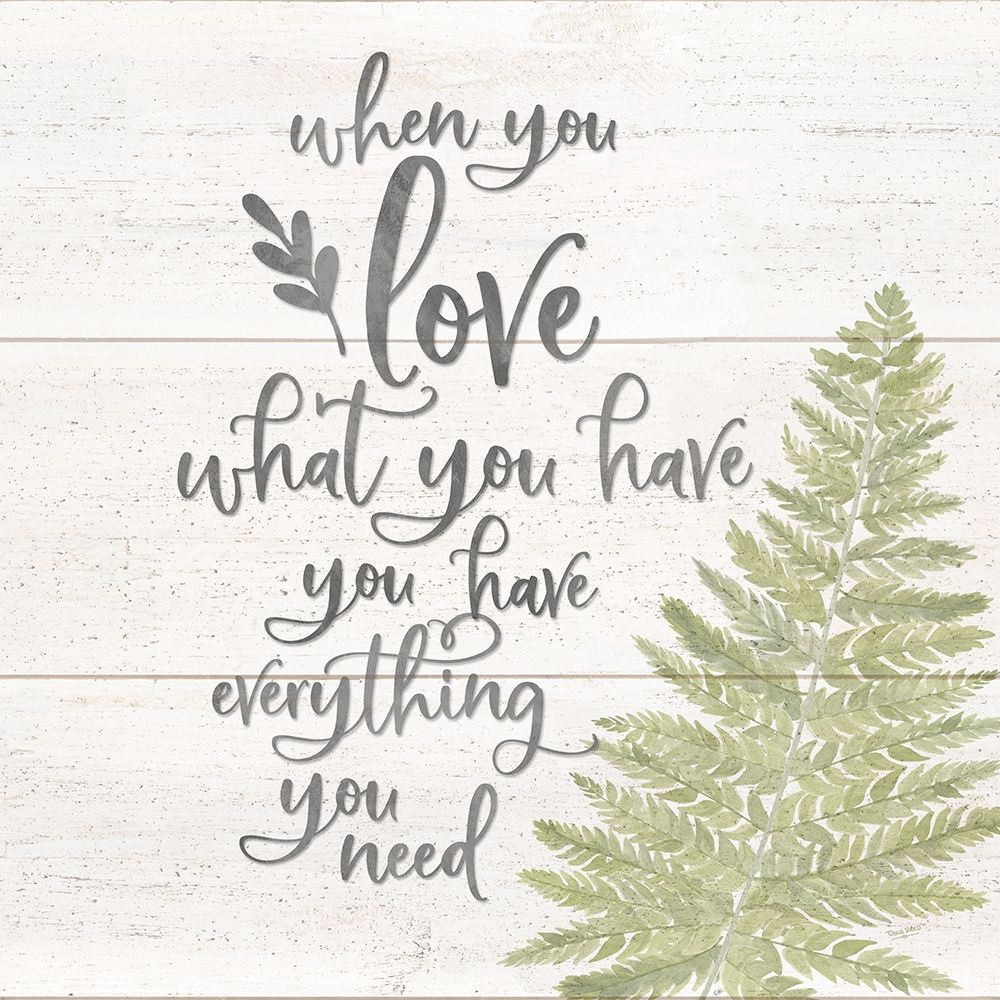 when you
love
what you have
you have
everything
you
need
Tara Reed